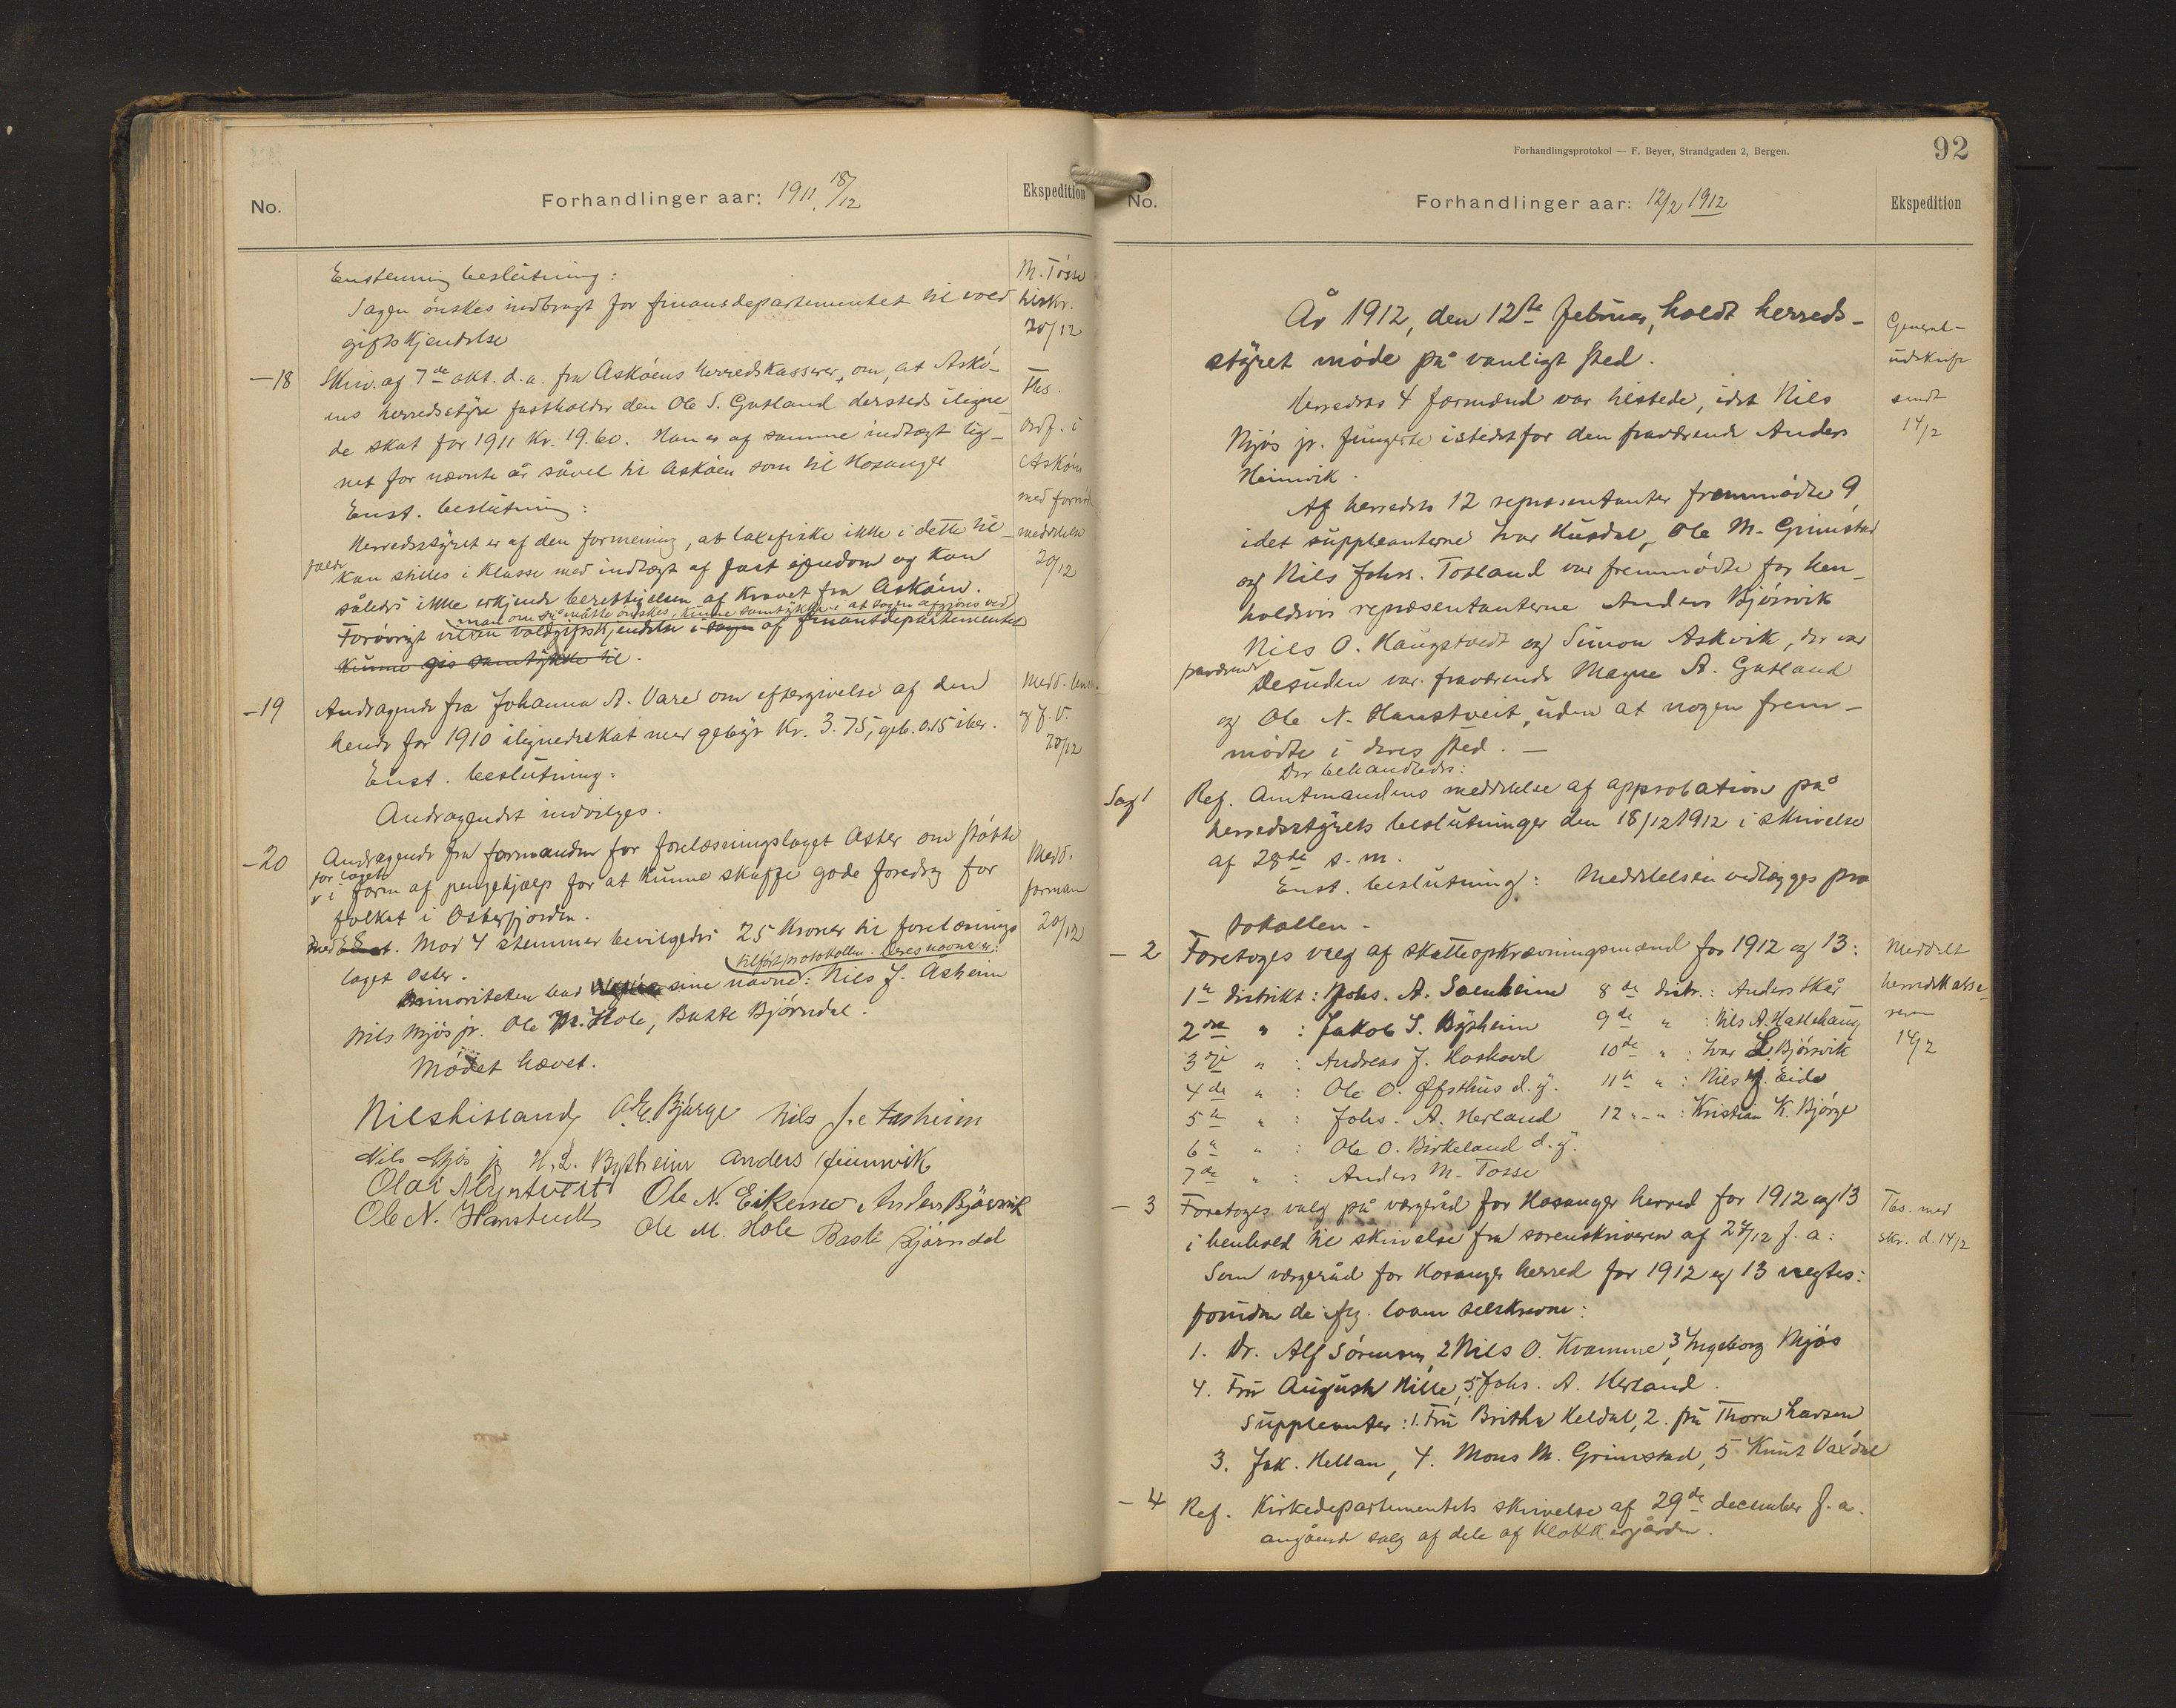 No.
Forhandlinger aar: 1911, 18/12
Ekspedition
Enstemmig beslutning:
Sagen ønskes indbragt for finansdepartementet til vold
giftskjendelse
M. Tosse
tilskr.
20/12
—18 Skriv. af 7de okt. d.a. fra Askøens herredskasserer, om, at Askø-
ens herredsstyre fastholder den Ole S. Gutland dersteds iligne-
de skat for 1911 kr. 19.60. Han er af samme indtægt lig-
net for nævnte år såvel til Askøen som til Hosanger
Enst. beslutning:
Herredsstyret er af den formening, at laxefiske ikke i dette til-
fælde kan stilles i klasse med indtægt af fast ejendom og kan
således ikke erkjende berettigelsen af kravet fra Askøen.
man om så måtte ønskes, kunne samtykke i at sagen afgjøres ved
Forøvrigt vil en voldgiftskjendelse i sagen af finansdepartementet
kunne gis samtykke til.
Tils.
ordf. i
Askøen
med fornøden
meddelelse
20/12
—19 Andragende fra Johanna A. Vare om eftergivelse af den
hende for 1910 ilignede skat med gebyr kr. 3.75, geb. 0.15 iber.
Enst. beslutning:
Andragendet indvilges.
Medd.
og f. v.
20/12
—20 Andragende fra formanden for forelæsningslaget Oster om støtte
for laget
i form af pengehjælp for at kunne skaffe gode foredrag for
folket i Osterfjorden.
Med Enst. Mod 4 stemmer bevilgedes 25 kroner til forelæsnings
laget Oster.
tilført protokollen. Deres navne er:
Minoriteten bad sine navne: Nils J. Åsheim
Nils Mjøs jr. Ole M. Hole, Baste Bjørndal.
Mødet hævet.
Medd.
forman
20/12
Nils Litland A.E. Bjørge Nils J.e Aasheim
Nils Mjøs jr H. L. Bysheim Anders Heimvik
Olai Mjøstveit Ole N. Eikemo Anders Bjørsvik
Ole N. Hanstvedt Ole M. Hole Baste Bjørndal
Forhandlingsprotokol — F. Beyer, Strandgaden 2, Bergen.
92
No.
Forhandlinger aar: 12/2 1912
Ekspedition
År 1912, den 12te februar, holdt herreds-
styret møde på vanligt sted.
Herredets 4 formænd var tilstede, idet Nils
Mjøs jr. fungerte istedetfor den fraværende Anders
Heimvik.
Af herredets 12 repræsentanter fremmødte 9,
idet suppleanterne Ivar Husdal, Ole M. Grimstad
og Nils Johs. Totland var fremmødte for hen-
holdsvis repræsentanterne Anders Bjørsvik
Nils O. Haugstvedt og Simon Askvik, der var
fraværende
Desuden var fraværende Magne A. Gutland
og Ole N. Hanstveit, uden at nogen frem-
mødte i deres sted. —
Der behandledes:
General-
udskrift
sendt
14/2
Sag 1 Ref. Amtmandens meddelelse af approbation på
herredsstyrets beslutninger den 18/12 1912 i skrivelse
af 28de s.m.
Enst. beslutning: Meddelelsen vedlægges pro
tokollen.
— 2 Foretoges valg af skatteopkrævningsmænd for 1912 og 13:
1ste distrikt: Johs. A. Soenheim 8de distr.: Anders Skår
2det " : Jakob S. Bysheim 9de " : Nils A. Hatlehaug
3dje " : Andreas J. Hoshovd 10de " : Ivar L. Bjørsvik
4de " : Ole O. Øfsthus d.y. 11te " : Nils M. Eide
5te " : Johs. A. Herland 12 " - " : Kristian K. Bjørge
6te " : Ole O. Birkeland d.y.
7de " : Anders M. Tosse
Meddelt
herredskasse-
reren
14/2
— 3 Foretoges valg på værgeråd for Hosanger herred for 1912 og 13
i henhold til skrivelse fra sorenskriveren af 27/12 f.a:
Som værgeråd for Hosanger herred for 1912 og 13 valgtes:
foruden de ifg. loven selvskrevne:
1. Dr. Alf Sørensen, 2 Nils O. Kvamme, 3 Ingeborg Mjøs
4. Fru Augusta Hille, 5. Johs. A. Herland.
Suppleanter: 1. Fru Britha Keldal, 2. fru Thora Larsen
3. Jak. Hellan, 4. Mons M. Grimstad, 5 Knut Vaxdal
Tils. med
skr. d. 14/2
— 4 Ref. Kirkedepartementets skrivelse af 29de december f.a.
angående salg af dele af klokkergården.